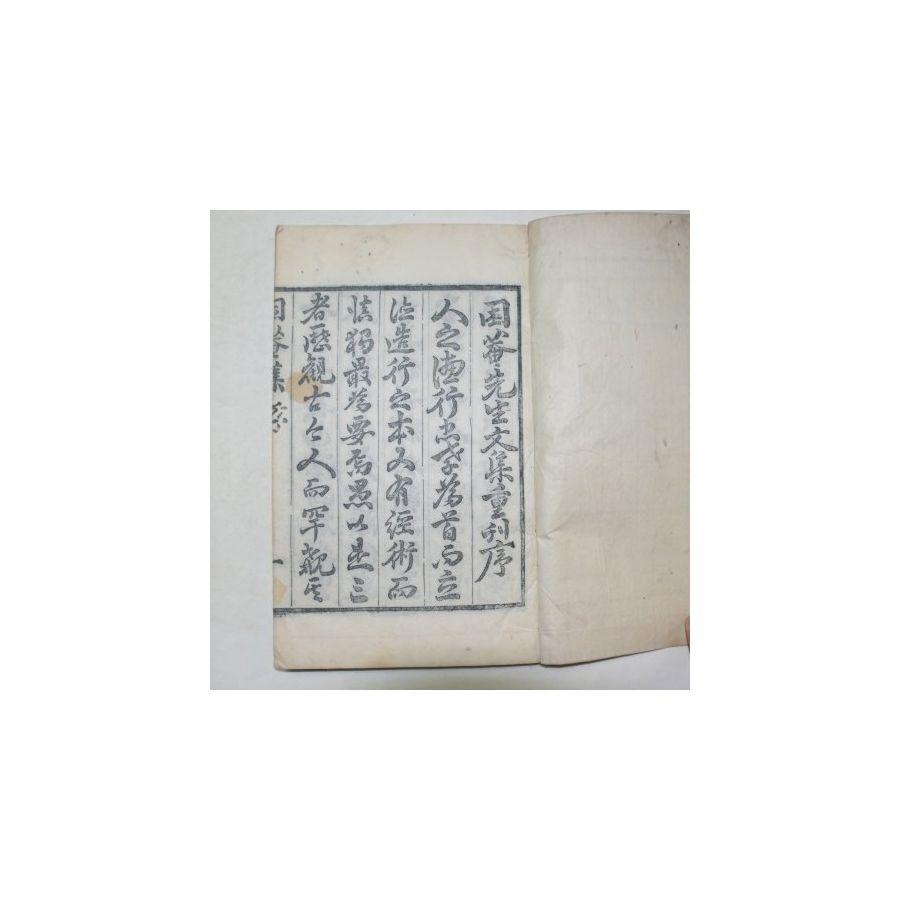 困菴先生文集重刊序
人之德行忠孝爲首而立
德造行之本又有經術而
慎獨最爲要焉愚以是三
者歷觀古今人而罕覯其
困菴集 序 一